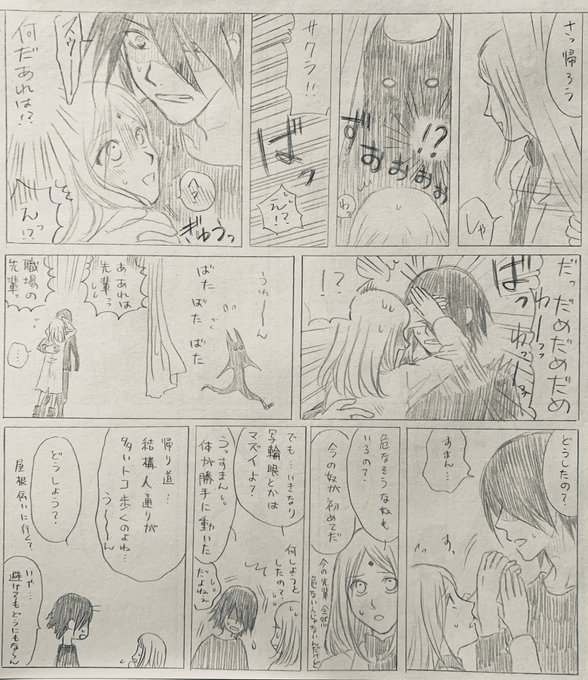 さっ帰ろう
しゃっ
!?
ずおおおお
サクラ!!
ばっ
えっ!?
スゥー
何だあれは!?
?
ぎゅうっ
えっ!?
だっだめだめだめ
わーっっ
ばっ
!?
うわーん
ばた
ばた
ばた
ああれは
先輩っ
職場の
先輩っ
…
どうしたの?
すまん…
すっ
危なそうな奴も
いるの?
今の奴が初めてだ
でも…いきなり
写輪眼とかは
マズイよ?
何しようと
したの?
うっすまん
体が勝手に動いた
だよねぇ
帰り道…
結構人通りが
多いトコ歩くのよね…
う〜〜ん
どうしよっ?
屋根伝いに行く?
いや…
避けてもどうにもならん